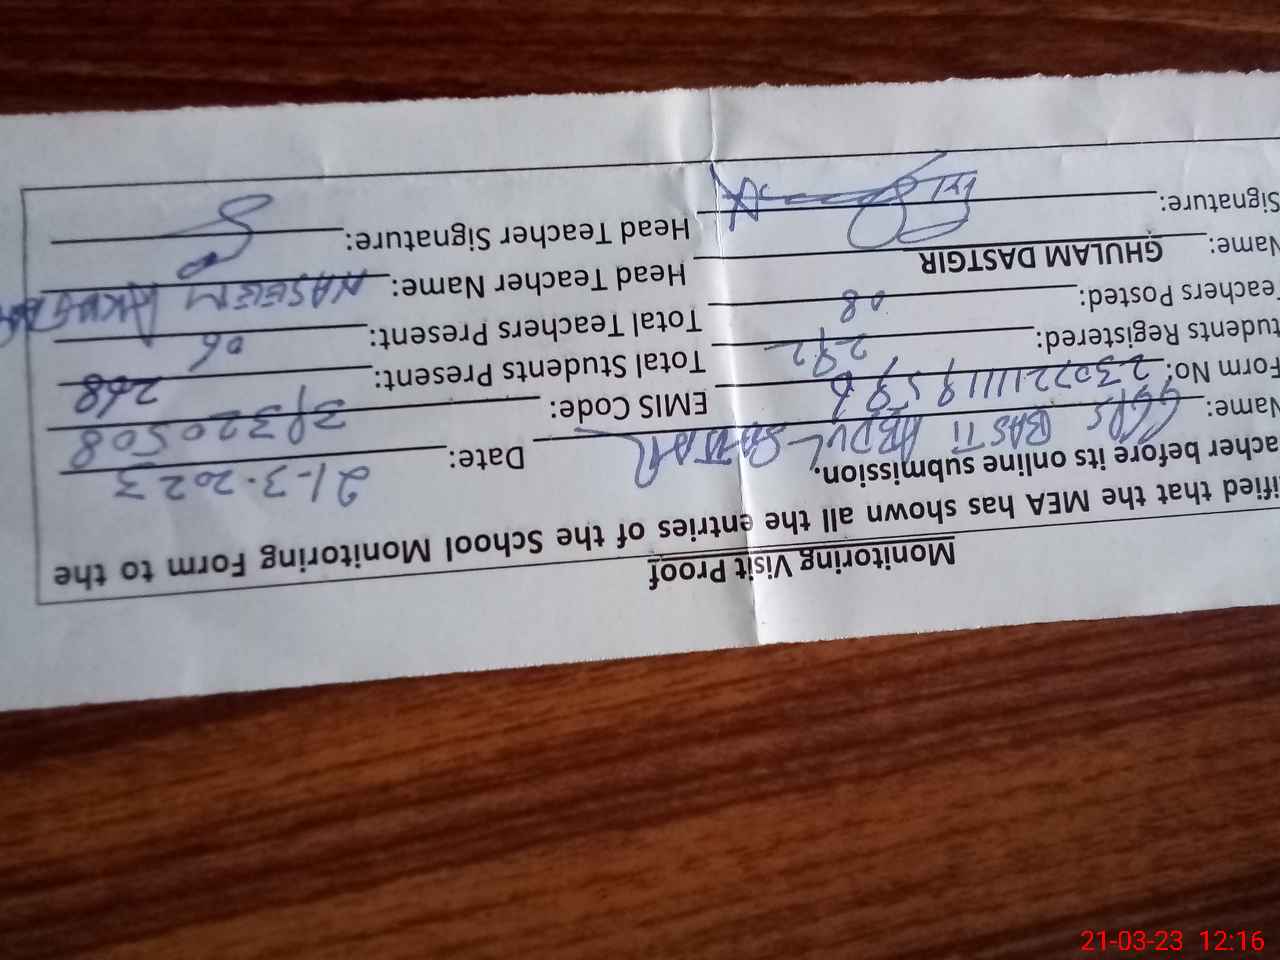 Monitoring Visit Proof
ified that the MEA has shown all the entries of the School Monitoring Form to the
acher before its online submission. Date: 21-3-2023
Name: GGPS BASTI ABDUL SATTAR EMIS Code: 31320508
Form No: 230722111119596 Total Students Present: 268
tudents Registered: 292 Total Teachers Present: 06
eachers Posted: 08 Head Teacher Name: NASEEM AKHTAR
Name: GHULAM DASTGIR Head Teacher Signature:
Signature:
21-03-23 12:16